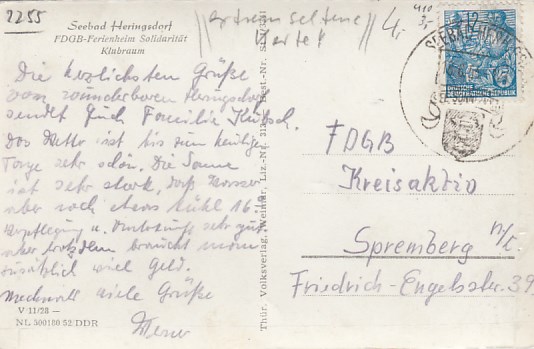 2255
Seebad Heringsdorf
FDGB-Ferienheim Solidarität
Klubraum
extrem seltene
Karte
4,
Die herzlichsten Grüße
vom wunderbaren Heringsdorf
sendet Euch Familie
Das Wetter ist bis zum heutigen
Tage sehr schön. Die Sonne
ist sehr stark, das Wasser
aber noch etwas kühl 16°
Verpflegung u. sehr gut
aber trotzdem braucht man
zusätzlich viel Geld.
Nochmals viele Grüße
V 11/28 —
NL 500180 52/DDR
Thür. Volksverlag, Weimar, Liz.-Nr.
Best.-Nr.
DEUTSCHE
DEMOKRATISCHE REPUBLIK
12
SEEBAD HERINGSDORF
FDGB
Kreisaktiv
Spremberg n/L
Friedrich-Engelsstr. 39